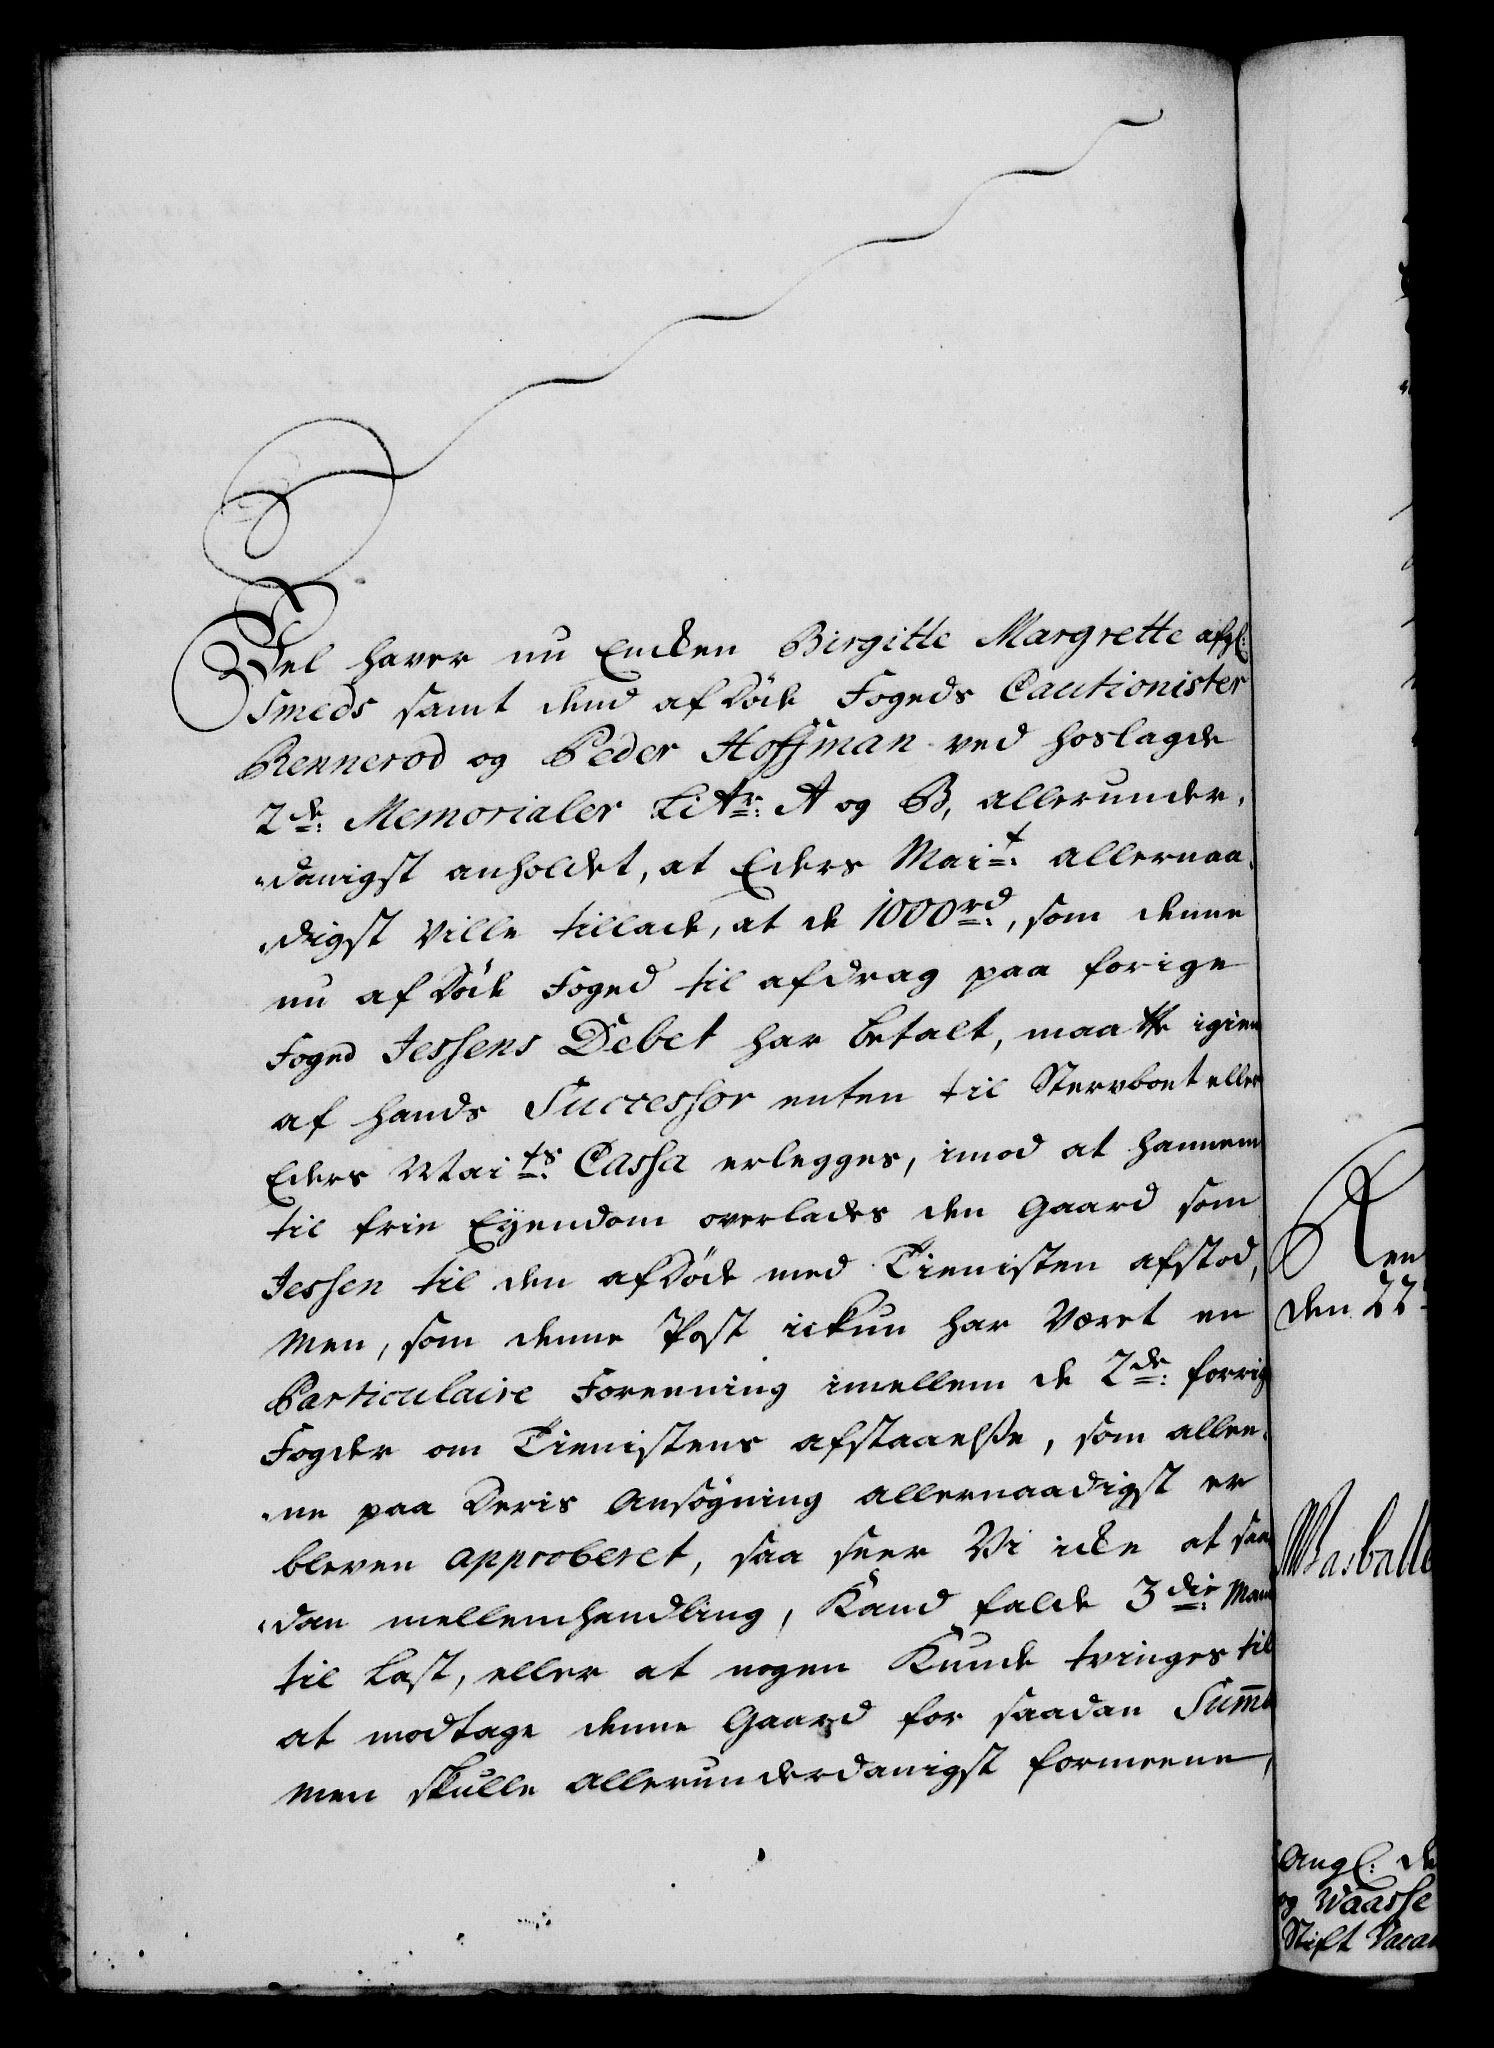 Vel haver nu Encken Birgitte Margrette afgl:
Smeds samt dend afdöde Fogeds Cautionister
Rennerod og Peder Hoffman ved hoslagde
2de: Memorialer Litr: A og B, allerunder-
danigst anholdet, at Eders Mait: allernaa-
digst ville tillade, at de 1000rd:, som denne
nu afdöde Foged til afdrag paa forige
Foged Jessens Debet har betalt, maatte igien
af hands Successor enten til Stervboet eller
Eders Maits: Cassa erlegges, imod at hannem
til frie Eyendom overlades den Gaard som
Jessen til den afdöde med Tienisten afstod,
Men, som denne Post ickun har været en
Particulaire Foreening imellem de 2de: forrige
Fogder om Tienistens afstaaelse, som allee-
ne paa deris Ansøgning allernaadigst er
bleven approberet, saa seer Vi icke at saa
dan mellemhandling, Kand falde 3die: Mand
til Last, eller at nogen Kunde tvinges til
at modtage denne Gaard for saadan Summa
Men skulle allerunderdanigst formeene,
Ren
den 22
Angl: de
og Waasse
Stift Vacan